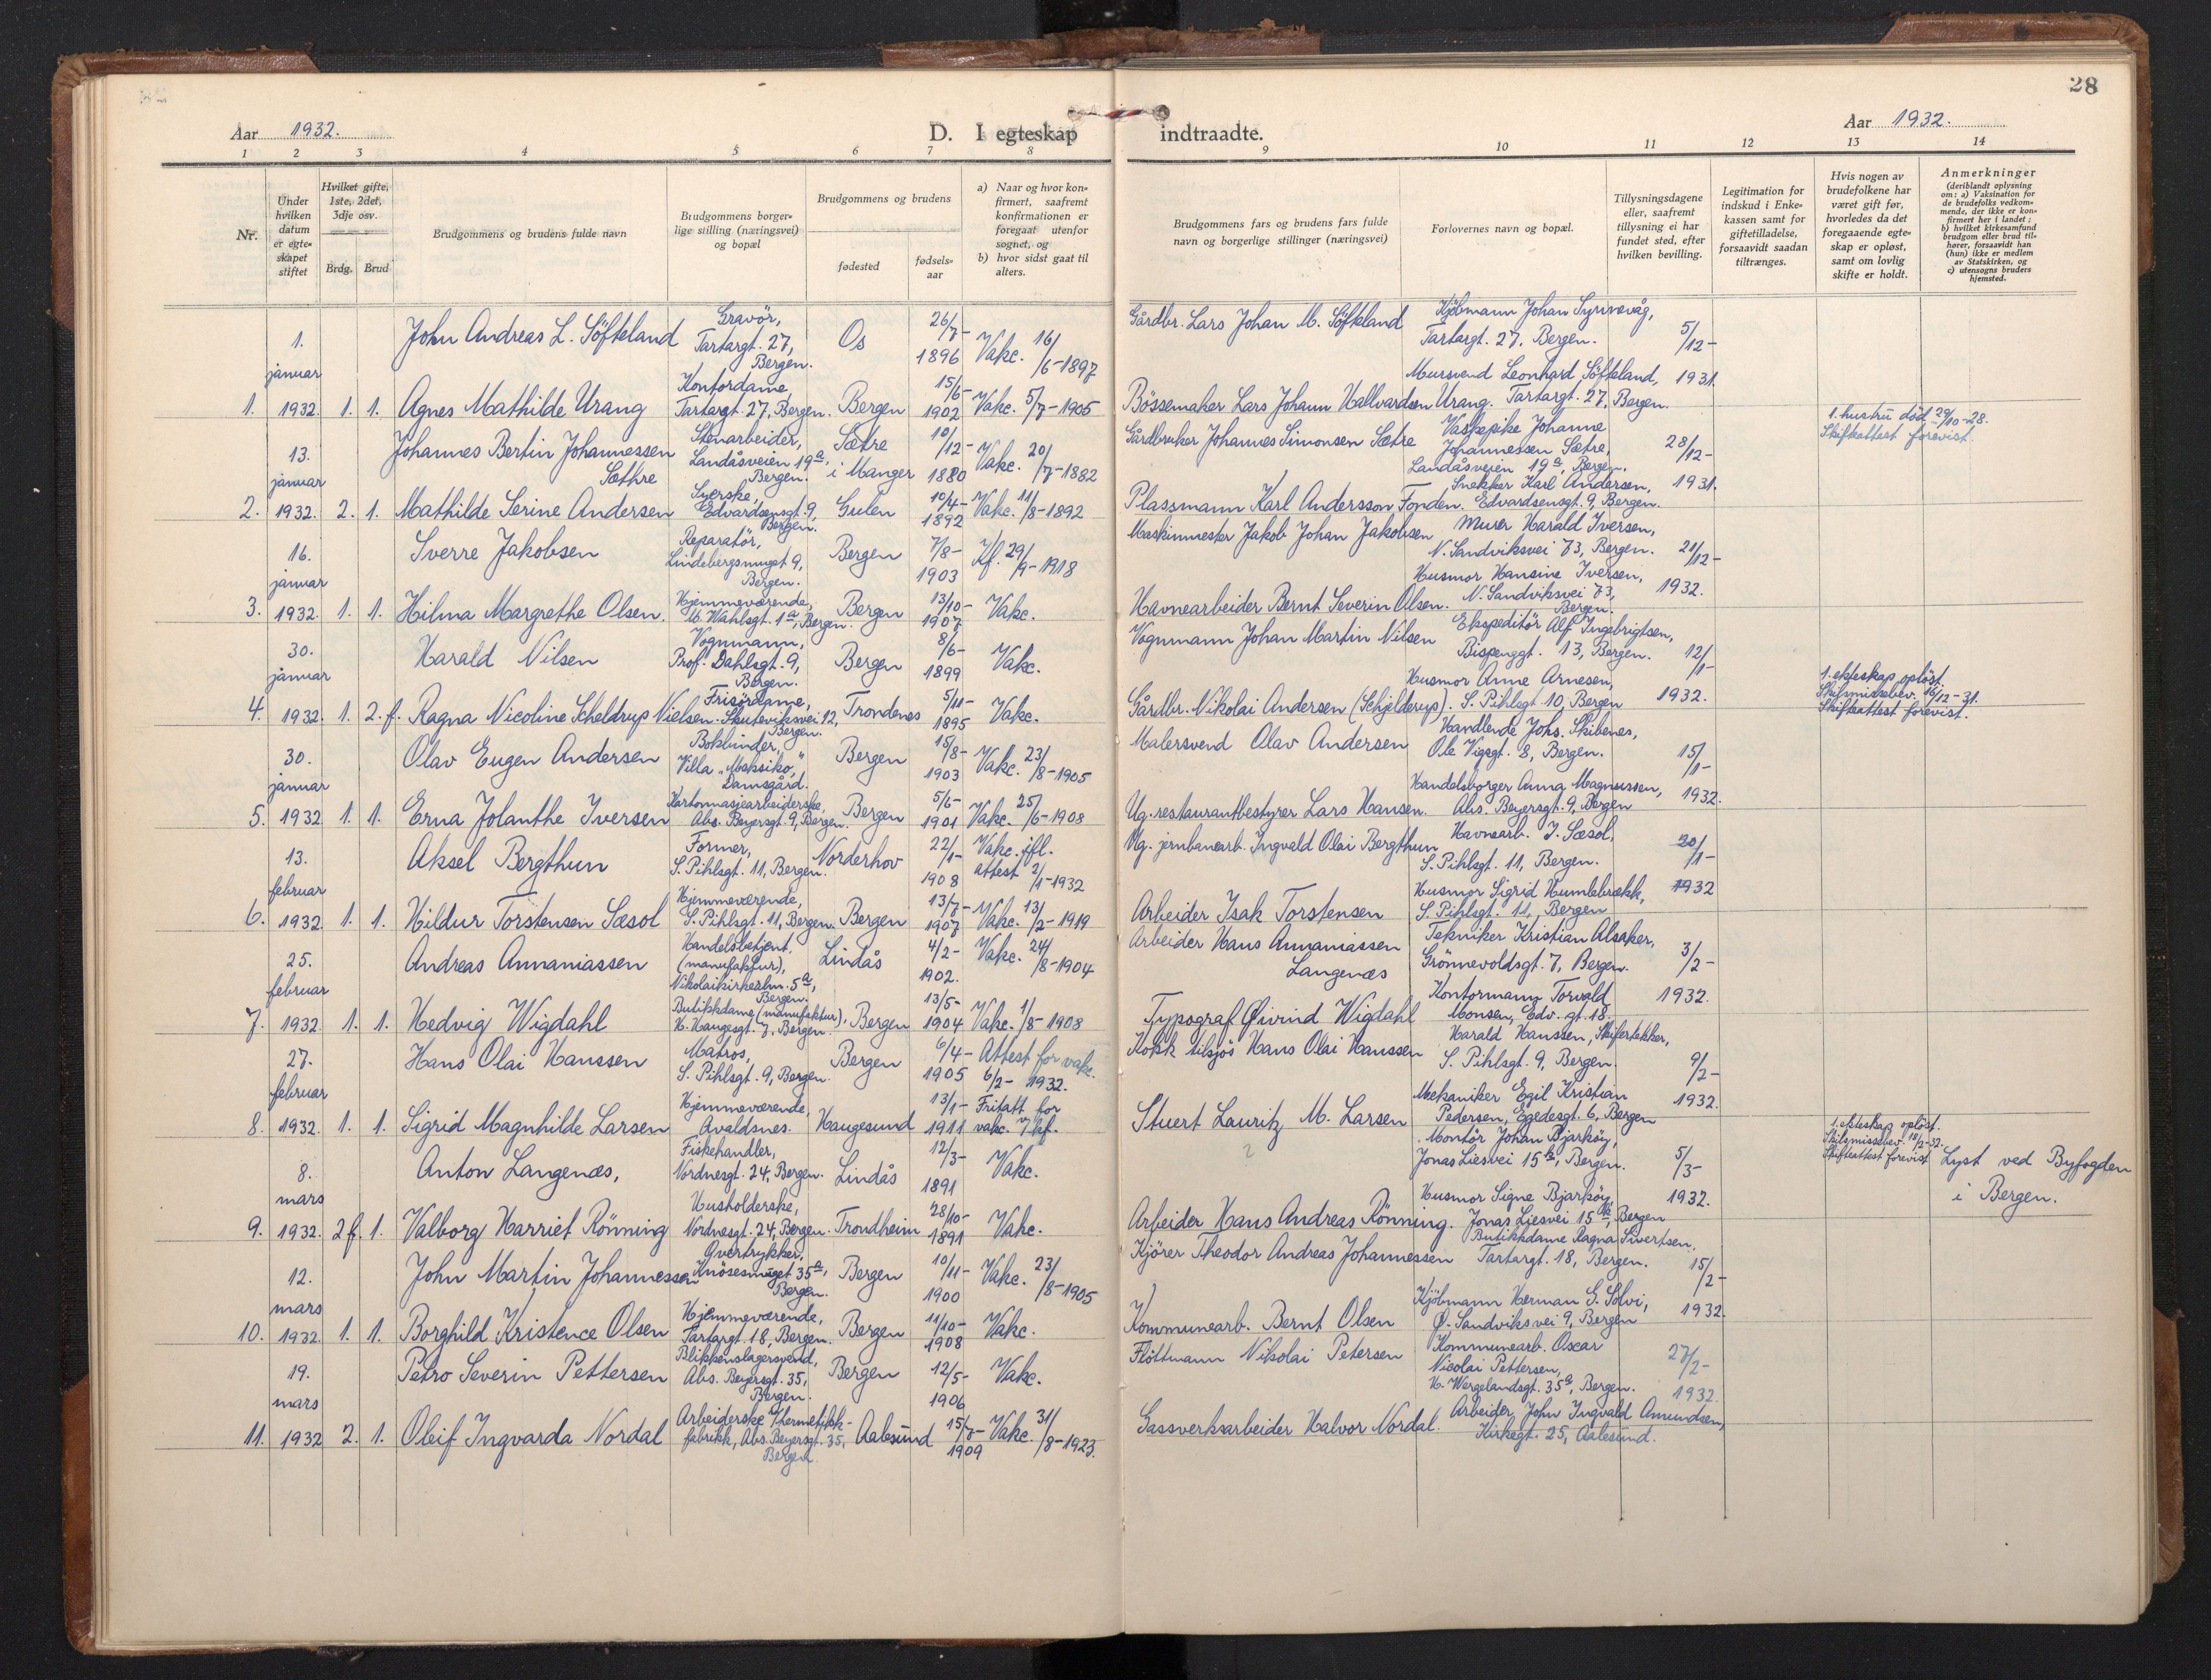 28
Aar 1932.
D. I egteskap indtraadte.
Aar 1932.
1 2 3 4 5 6 7 8 9 10 11 12 13 14
Nr.
Under hvilken datum er egteskapet stiftet
Hvilket gifte, 1ste, 2det, 3dje osv.
Brdg. Brud
Brudgommens og brudens fulde navn
Brudgommens borgerlige stilling (næringsvei) og bopæl
Brudgommens og brudens
fødested
fødselsaar
a) Naar og hvor konfirmert, saafremt konfirmationen er foregaat utenfor sognet, og
b) hvor sidst gaat til alters.
Brudgommens fars og brudens fars fulde navn og borgerlige stillinger (næringsvei)
Forlovernes navn og bopæl.
Tillysningsdagene eller, saafremt tillysning ei har fundet sted, efter hvilken bevilling.
Legitimation for indskud i Enkekassen samt for giftetilladelse, forsaavidt saadan tiltrænges.
Hvis nogen av brudefolkene har været gift før, hvorledes da det foregaaende egteskap er opløst, samt om lovlig skifte er holdt.
Anmerkninger
(deriblandt oplysning om: a) Vaksination for de brudefolks vedkommende, der ikke er konfirmert her i landet; b) hvilket kirkesamfund brudgom eller brud tilhører, forsaavidt han (hun) ikke er medlem av Statskirken, og c) utensogns bruders hjemsted.
1. januar John Andreas L. Söfteland Gravör, Tartargt. 27, Bergen. Os 26/7-1896 Vakc. 16/6-1897 Gårdbr. Lars Johan M. Söfteland Kjöbmann Johan Synnevåg, Tartargt. 27, Bergen. 5/12-
1. 1932. 1. 1. Agnes Mathilde Urang Kontordame, Tartargt. 27, Bergen. Bergen 15/6-1902 Vakc. 5/7-1905 Bössemaker Lars Johann Hallvardsen Urang. Mursvend Leonhard Söfteland, Tartargt. 27, Bergen. 1931.
13. januar Johannes Bertin Johannessen Sæthre Stenarbeider, Landåsveien 19a, Bergen. Sætre i Manger 10/12-1880 Vakc. 20/7-1882 Gårdbruker Johannes Simonsen Sætre Vaskepike Johanne Johannessen Sætre, Landåsveien 19a, Bergen. 28/12- 1. hustru död 29/10-28. Skifteattest forevist.
2. 1932. 2. 1. Mathilde Serine Andersen Syerske, Edvardsensgt. 9, Bergen. Gulen 10/4-1892 Vakc. 11/8-1892 Plassmann Karl Andersson Fonden. Snekker Karl Andersen, Edvardsensgt. 9, Bergen. 1931.
16. januar Sverre Jakobsen Reparatör, Lindebergsmuget 9, Bergen. Bergen 7/8-1903 Kf. 29/9-1918 Maskinmester Jakob Johan Jakobsen Murer Harald Iversen, N. Sandviksvei 73, Bergen. 21/12-
3. 1932. 1. 1. Hilma Margrethe Olsen. Hjemmeværende, M. Wahlsgt. 1a, Bergen. Bergen 13/10-1907 Vakc. Havnearbeider Bernt Severin Olsen. Husmor Hansine Iversen, N. Sandviksvei 73, Bergen. 1932.
30. januar Harald Nilsen Vognmann, Prof. Dahlsgt. 9, Bergen. Bergen 8/6-1899 Vakc. Vognmann Johan Martin Nilsen Ekspeditör Alf Ingebrigtsen, Bispenggt. 13, Bergen. 12/1-
4. 1932. 1. 2.f. Ragna Nicoline Scheldrup Nielsen. Frisördame, Skuteviksvei 12, Bergen. Trondenes 5/11-1895 Vakc. Gårdbr. Nikolai Andersen (Schjelderup). Husmor Anne Arnesen, S. Pihlsgt. 10, Bergen 1932. 1. ekteskap oplöst. Skilsmissebev. 16/12-31. Skifteattest forevist.
30. januar Olav Eugen Andersen Bokbinder, Villa „Meksiko", Damsgård. Bergen 15/8-1903 Vakc. 23/8-1905 Malersvend Olav Andersen Handlende Johs. Skibenes, Ole Vigsgt. 8, Bergen. 15/1-
5. 1932 1. 1. Erna Jolanthe Iversen Kartonnasjearbeiderske, Abs. Beyersgt. 9, Bergen. Bergen 5/5-1901 Vakc. 25/6-1908 Ug. restaurantbestyrer Lars Hansen. Handelsborger Anna Magnussen, Abs. Beyersgt. 9, Bergen 1932.
13. februar Aksel Bergthun Former, S. Pihlsgt. 11, Bergen. Norderhov 22/1-1908 Vakc. ifl. attest 2/1-1932 Ug. jernbanearb. Ingvald Olai Bergthun Havnearb. I. Sæsol, S. Pihlsgt. 11, Bergen. 20/1-
6. 1932. 1. 1. Hildur Torstensen Sæsol Hjemmeværende, S. Pihlsgt. 11, Bergen. Bergen 13/7-1907 Vakc. 13/2-1919 Arbeider Isak Torstensen Husmor Sigrid Humlebrækk, S. Pihlsgt. 11, Bergen 1932
25. februar Andreas Annaniassen Handelsbetjent. (manufaktur), Nikolaikirkealm. 5a, Bergen. Lindås 4/2-1902. Vakc. 24/8-1904 Arbeider Hans Annaniassen Langenæs Tekniker Kristian Alsaker, Grönnevoldsgt. 7, Bergen. 3/2-
7. 1932. 1. 1. Hedvig Wigdahl Butikkdame (manufaktur), H. Haugesgt. 7, Bergen. Bergen 13/5-1904 Vakc. 1/8-1908 Typograf Øivind Wigdahl Kontormann Torvald Monsen, Edv. gt. 18. 1932.
27. februar Hans Olai Hanssen Matros, S. Pihlsgt. 9, Bergen. Bergen 6/4-1905 Attest for vakc. 6/2-1932. Kokk tilsjös Hans Olai Hanssen Harald Hanssen, Skifertekker, S. Pihlsgt. 9, Bergen. 9/2-
8. 1932. 1. 1. Sigrid Magnhilde Larsen Hjemmeværende, Avaldsnes. Haugesund 13/1-1911 Fritatt for vakc. v/ kf. Stuert Lauritz M. Larsen Mekaniker Egil Kristian Pedersen, Egedesgt. 6, Bergen 1932.
8. mars Anton Langenæs, Fiskehandler, Nordnesgt. 24, Bergen. Lindås 12/3-1891 Vakc. Montör Johan Bjarköy, Jonas Liesvei 15a, Bergen. 5/3- 1. ekteskap oplöst. Skilsmissebev. 18/2-32. Skifteattest forevist Lyst ved Byfogden i Bergen.
9. 1932. 2f. 1. Valborg Harriet Rönning Husholderske, Nordnesgt. 24, Bergen. Trondheim 28/10-1891 Vakc. Arbeider Hans Andreas Rönning. Husmor Signe Bjarköy, Jonas Liesvei 15a, Bergen 1932.
12. mars John Martin Johannessen Overtrykker, Knösesmuget 35a, Bergen. Bergen 10/11-1900 Vakc. 23/8-1905 Kjörer Theodor Andreas Johannessen Butikkdame Ragna Sivertsen, Tartargt. 18, Bergen. 15/2-
10. 1932. 1. 1. Borghild Kristence Olsen Hjemmeværende, Tartargt. 18, Bergen. Bergen 11/10-1908 Vakc. Kommunearb. Bernt Olsen Kjöbmann Herman G. Solvi, Ø. Sandviksvei 9, Bergen 1932.
19. mars Petro Severin Pettersen Blikkenslagersvend, Abs. Beyersgt. 35, Bergen. Bergen 12/5-1906 Vakc. Flöttmann Nikolai Petersen Kommunearb. Oscar Nicolai Pettersen, H. Wergelandsgt. 35a, Bergen. 27/2- 1932.
11. 1932 2. 1. Oleif Ingvarda Nordal Arbeiderske Hermetikkfabrikk, Abs. Beyersgt. 35, Bergen. Aalesund 15/7-1909 Vakc. 31/8-1923. Gassverksarbeider Halvor Nordal. Arbeider John Ingvald Amundsen, Kirkegt. 25, Aalesund.